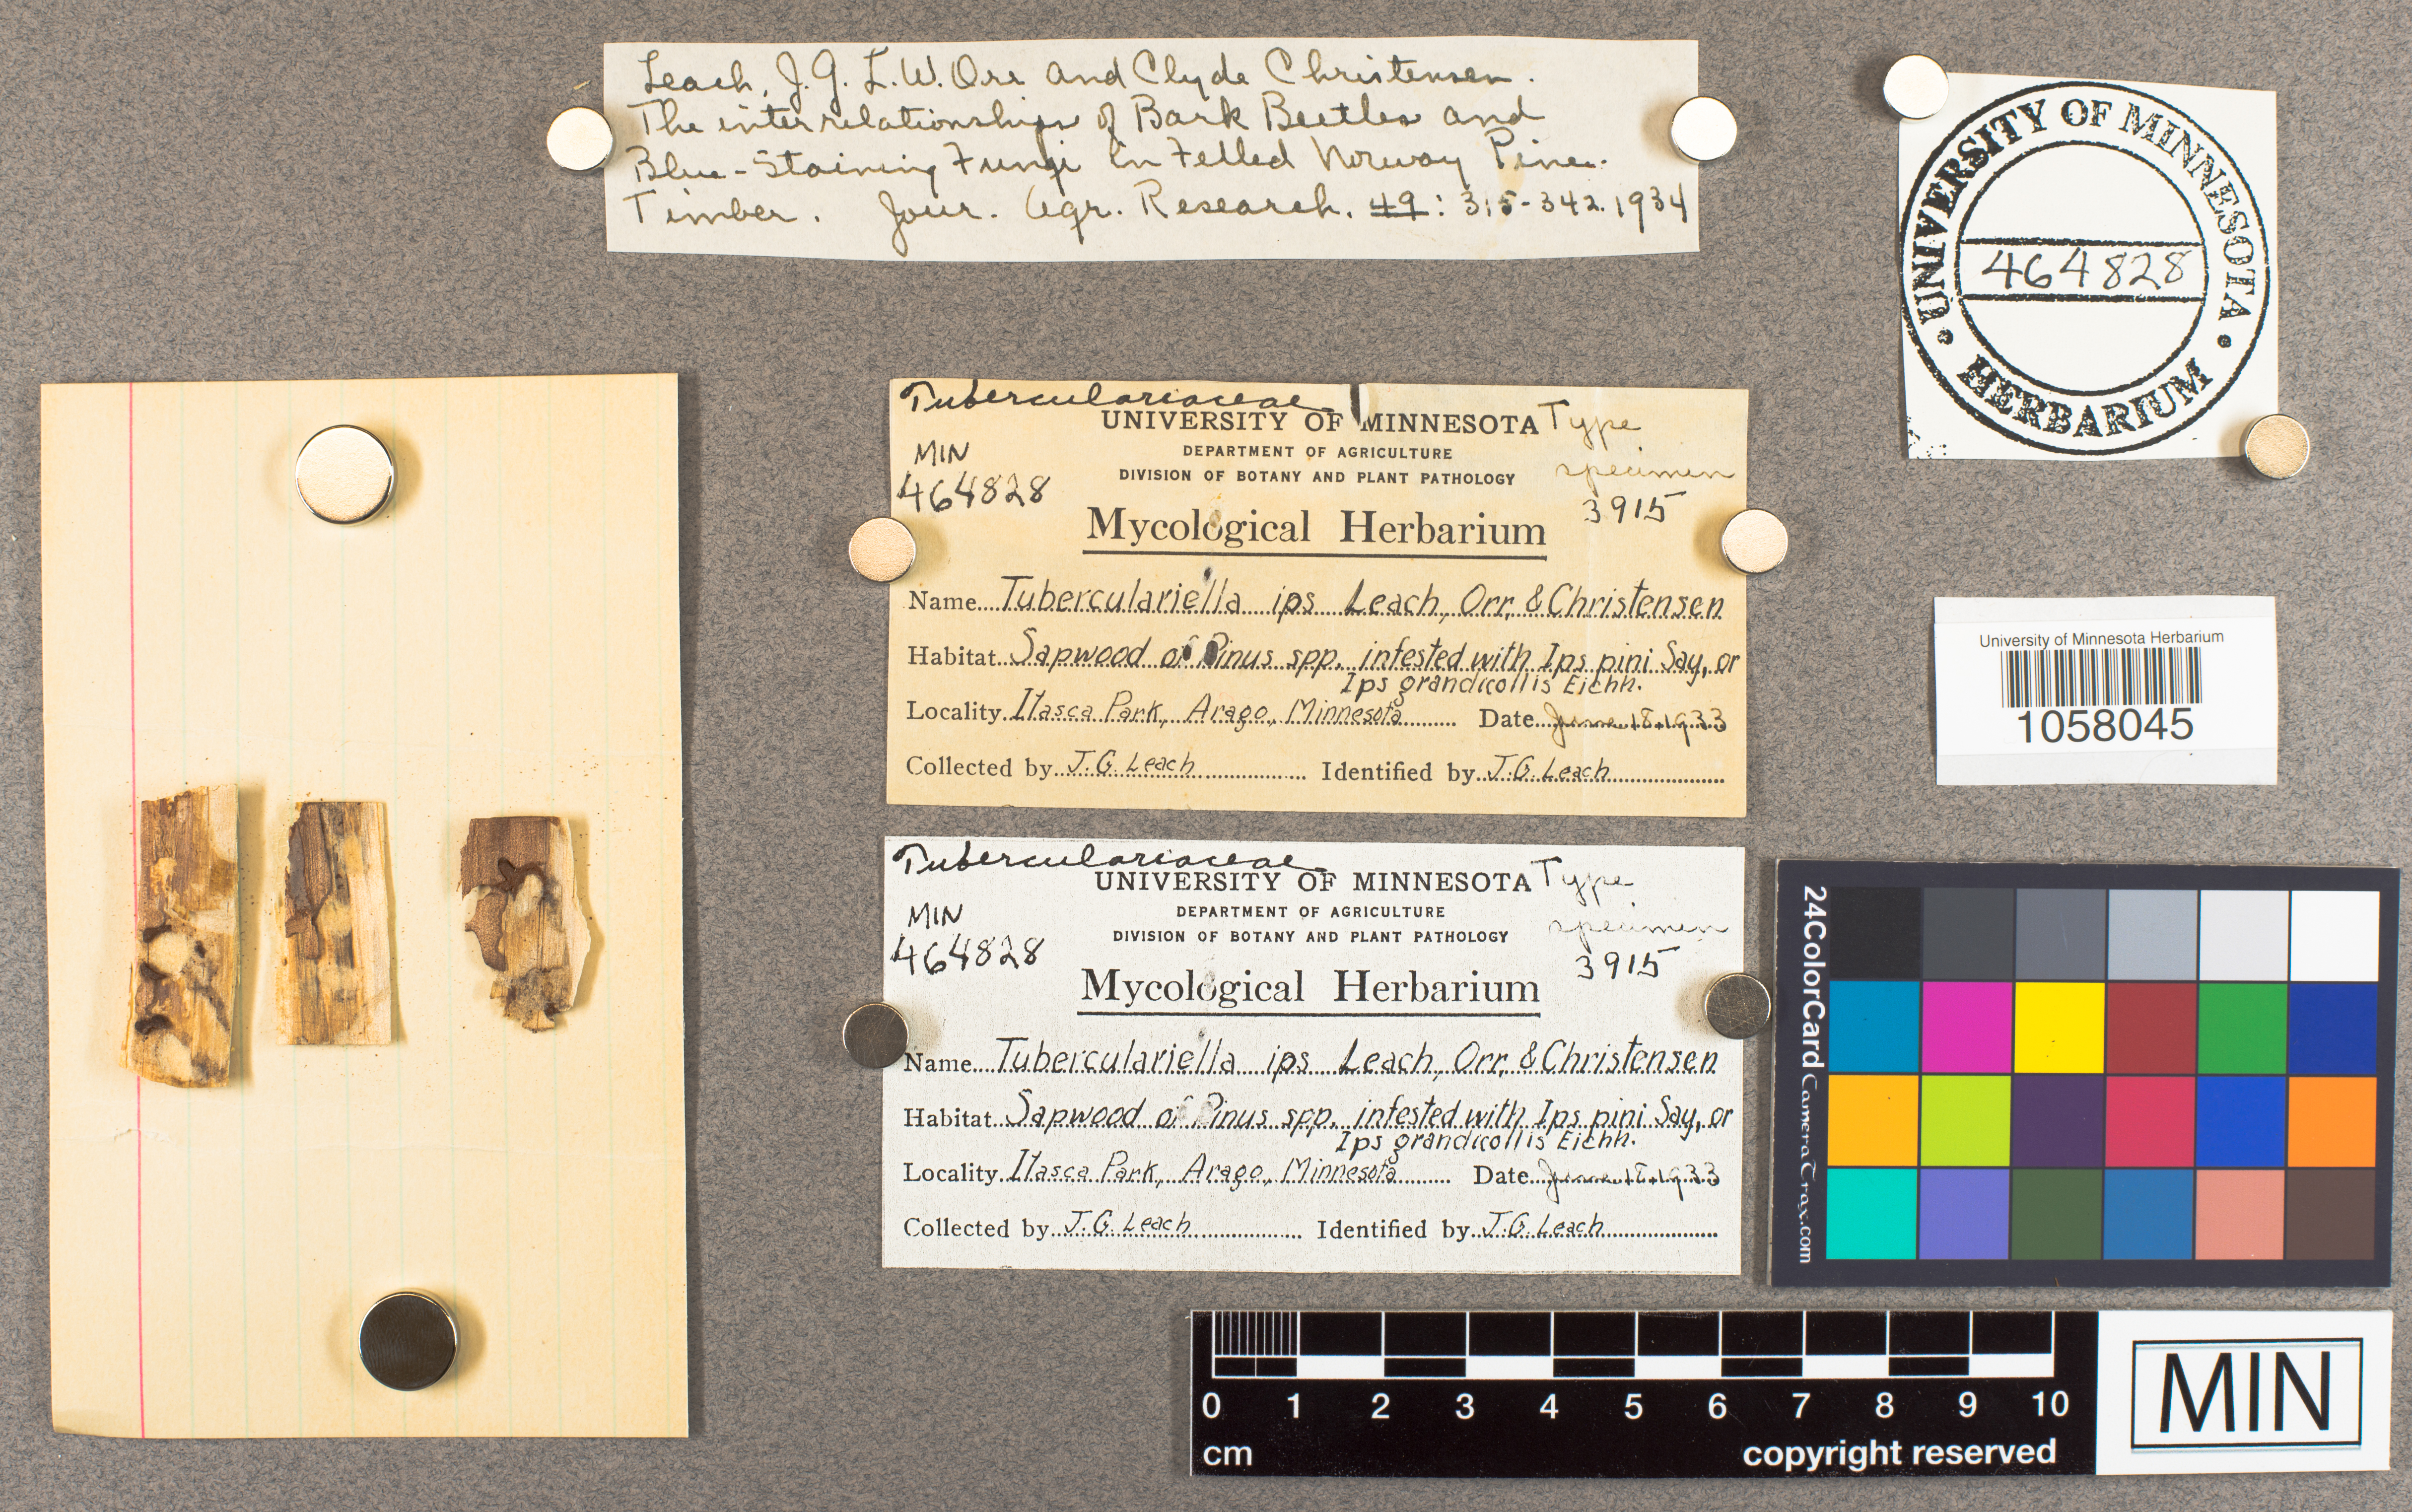 Leach, J.G. L.W. Orr and Clyde Christensen.
The interrelationships of Bark Beetles and
Blue-Staining Fungi in Felled Norway Pine
Timber. Jour. Agr. Research. 49: 315-342. 1934
UNIVERSITY OF MINNESOTA
464828
HERBARIUM
Tuberculariaceae
UNIVERSITY OF MINNESOTA Type
DEPARTMENT OF AGRICULTURE
MIN
specimen
DIVISION OF BOTANY AND PLANT PATHOLOGY
464828
3915
Mycological Herbarium
Name Tuberculariella ips Leach, Orr, & Christensen
Habitat Sapwood of Pinus spp. infested with Ips pini Say, or
Ips grandicollis Eichh.
Locality Itasca Park, Arago, Minnesota Date June 18, 1933
Collected by J.G. Leach Identified by J.G. Leach
University of Minnesota Herbarium
1058045
Tuberculariaceae
UNIVERSITY OF MINNESOTA Type
DEPARTMENT OF AGRICULTURE
MIN
specimen
DIVISION OF BOTANY AND PLANT PATHOLOGY
464828
3915
Mycological Herbarium
Name Tuberculariella ips Leach, Orr, & Christensen
Habitat Sapwood of Pinus spp. infested with Ips pini Say, or
Ips grandicollis Eichh.
Locality Itasca Park, Arago, Minnesota Date June 18, 1933
Collected by J.G. Leach Identified by J.G. Leach
24ColorCard CameraTrax.com
0 1 2 3 4 5 6 7 8 9 10
cm copyright reserved
MIN